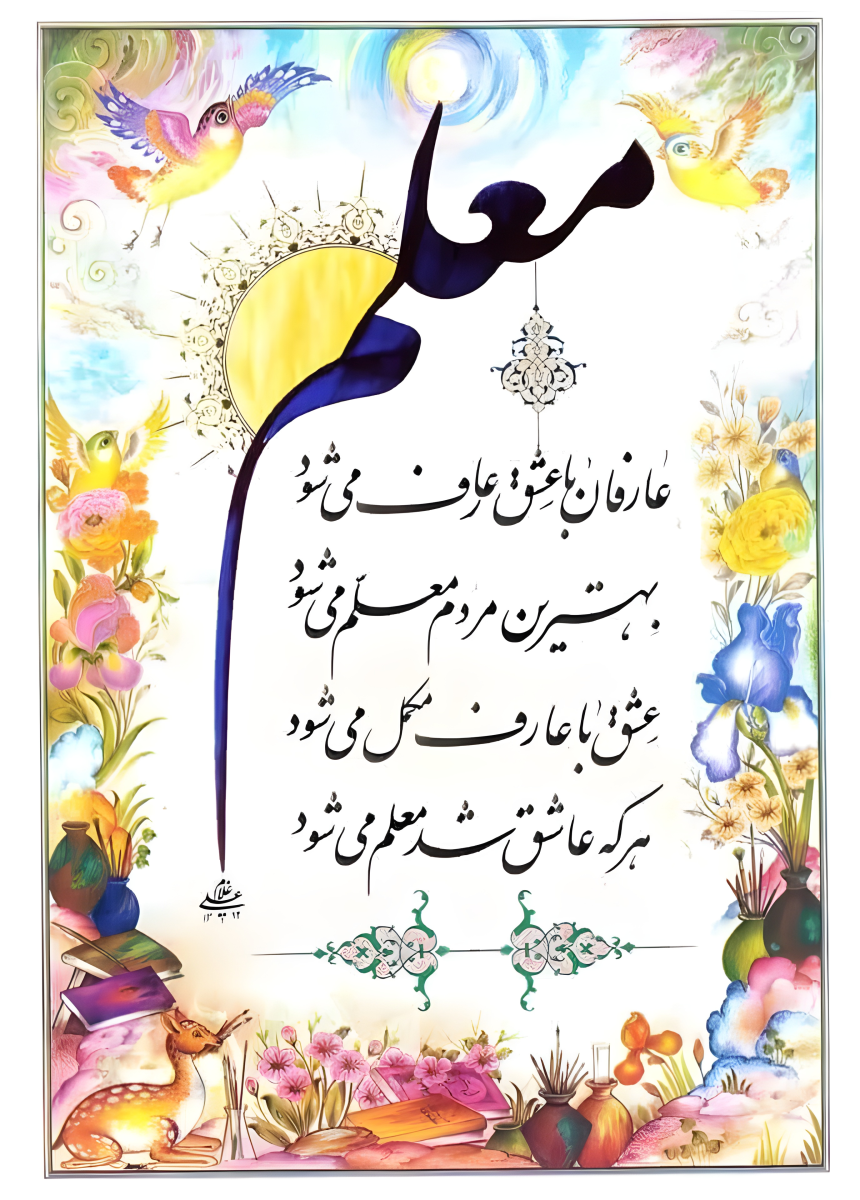 معلم
عارفان با عشق عارف می شود
بهترین مردم معلّم می شود
عشق با عارف مکمل می شود
هر که عاشق شد معلم می شود
غلام
علی